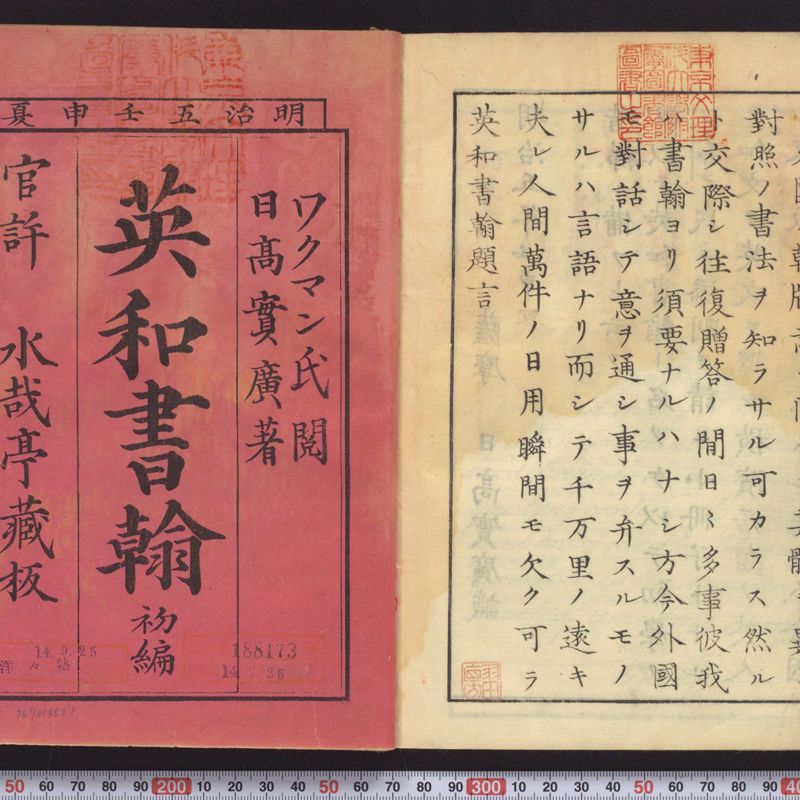 明治五壬申夏
ワクマン氏閲
日髙實廣著
英和書翰 初編
官許 水哉亭藏板
188173
14.9.25
14.9.25
英和書翰題言
夫レ人間萬件ノ日用瞬間モ欠ク可ラ
サルハ言語ナリ而シテ千万里ノ遠キ
モ對話シテ意ヲ通シ事ヲ弁スルモノ
ハ書翰ヨリ須要ナルハナシ方今外國
ト交際シ往復贈答ノ間日〻多事彼我
對照ノ書法ヲ知ラサル可カラス然ル
50 60 70 80 90 200 10 20 30 40 50 60 70 80 90 300 10 20 30 40 50 60 70 80 90